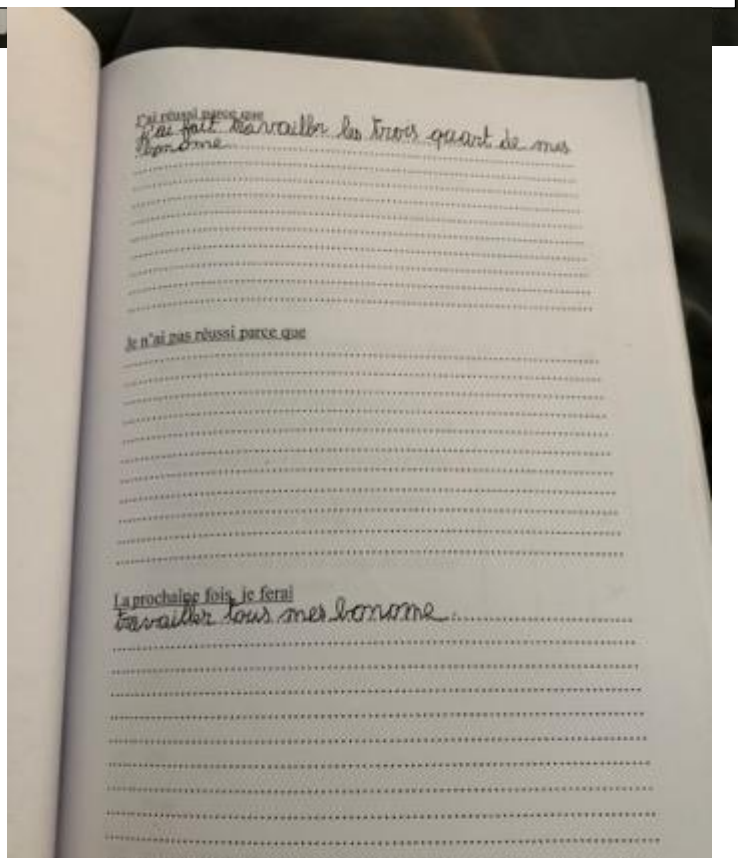 J'ai réussi parce que
J'ai fait travailler les trois quart de mes
bonome.
Je n'ai pas réussi parce que
La prochaine fois, je ferai
travailler tous mes bonome.